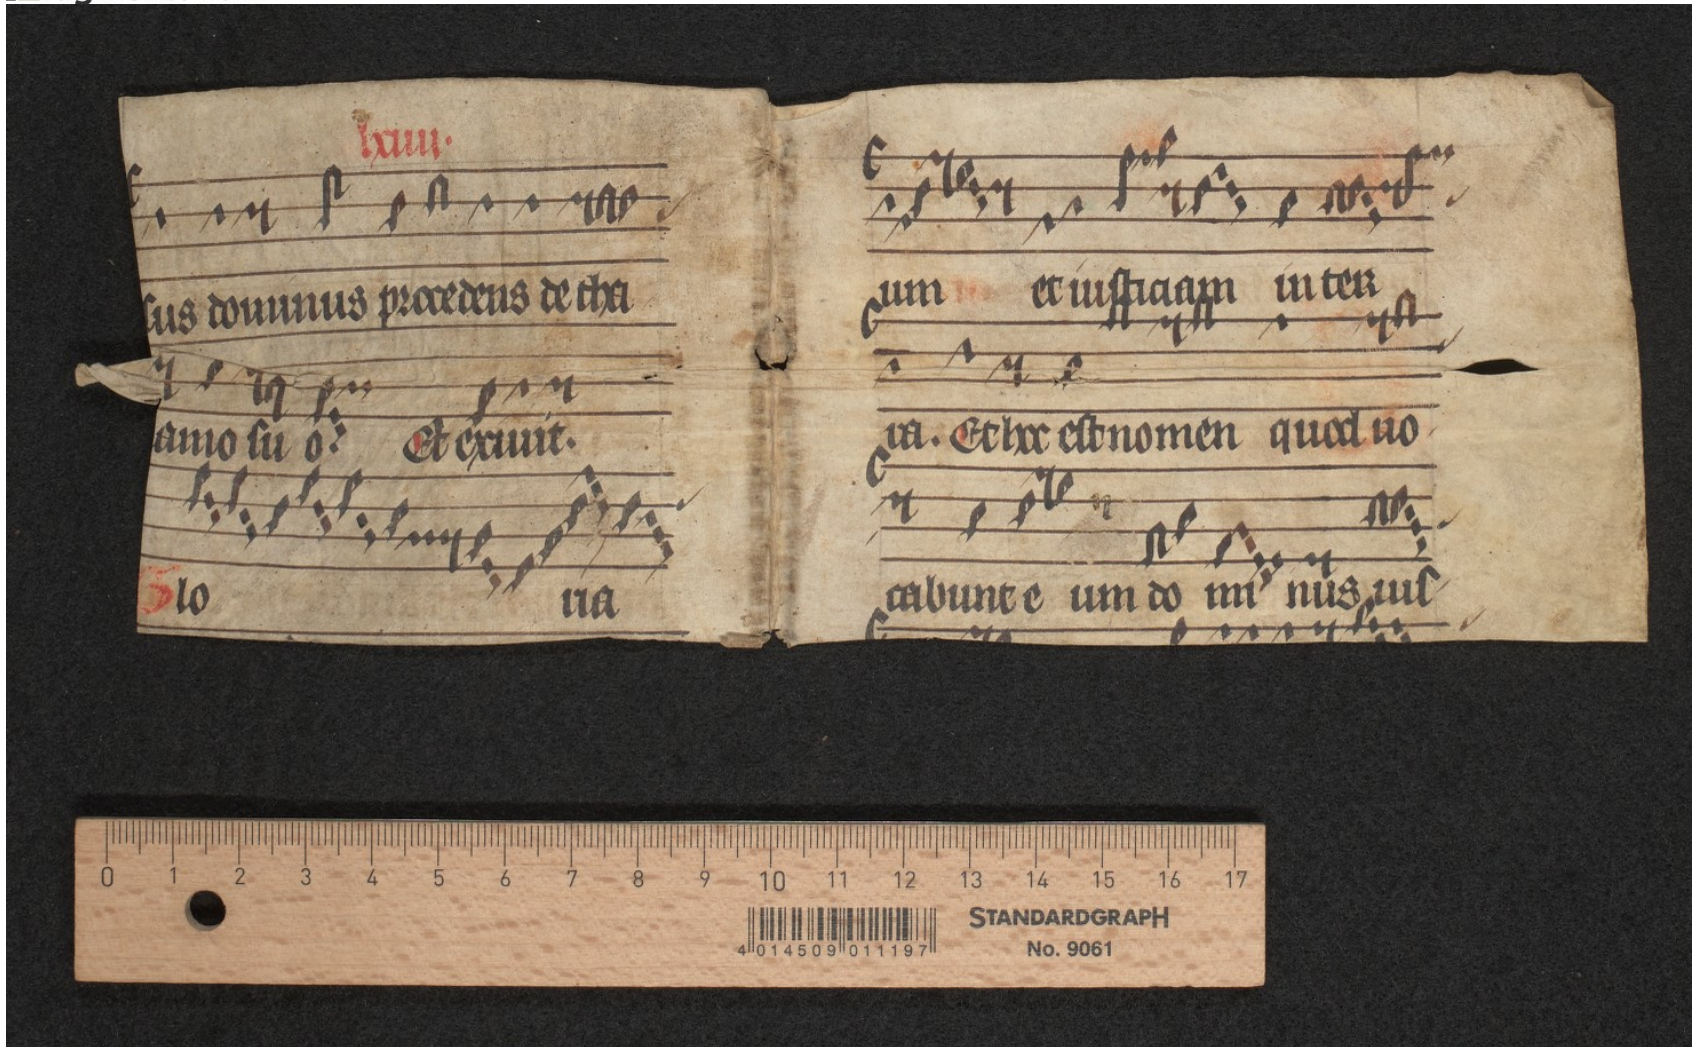 lxiiii.
sus dominus procedens de tha
amo su o. Et exiuit.
Glo ria
um et iusticiam in ter
ra. Et hoc est nomen quod uo
cabunt e um do mi nus ius
0 1 2 3 4 5 6 7 8 9 10 11 12 13 14 15 16 17
STANDARDGRAPH
No. 9061
4 014509 011197